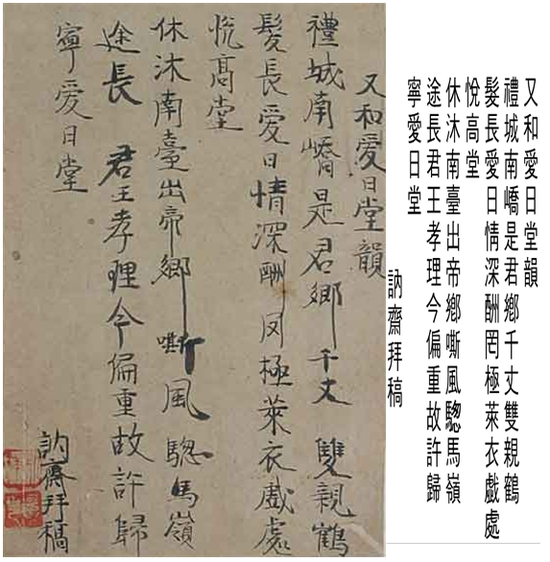 又和愛日堂韻
禮城南嶠是君鄉千丈雙親鶴
髮長愛日情深酬罔極萊衣戲處
悅高堂
休沐南臺出帝鄉嘶風驄馬嶺
途長君王孝理今偏重故許歸
寧愛日堂
訥齋拜稿
又和愛日堂韻
禮城南嶠是君鄉千丈雙親鶴
髮長愛日情深酬罔極萊衣戲處
悅高堂
休沐南臺出帝鄉嘶風驄馬嶺
途長君王孝理今偏重故許歸
寧愛日堂
訥齋拜稿